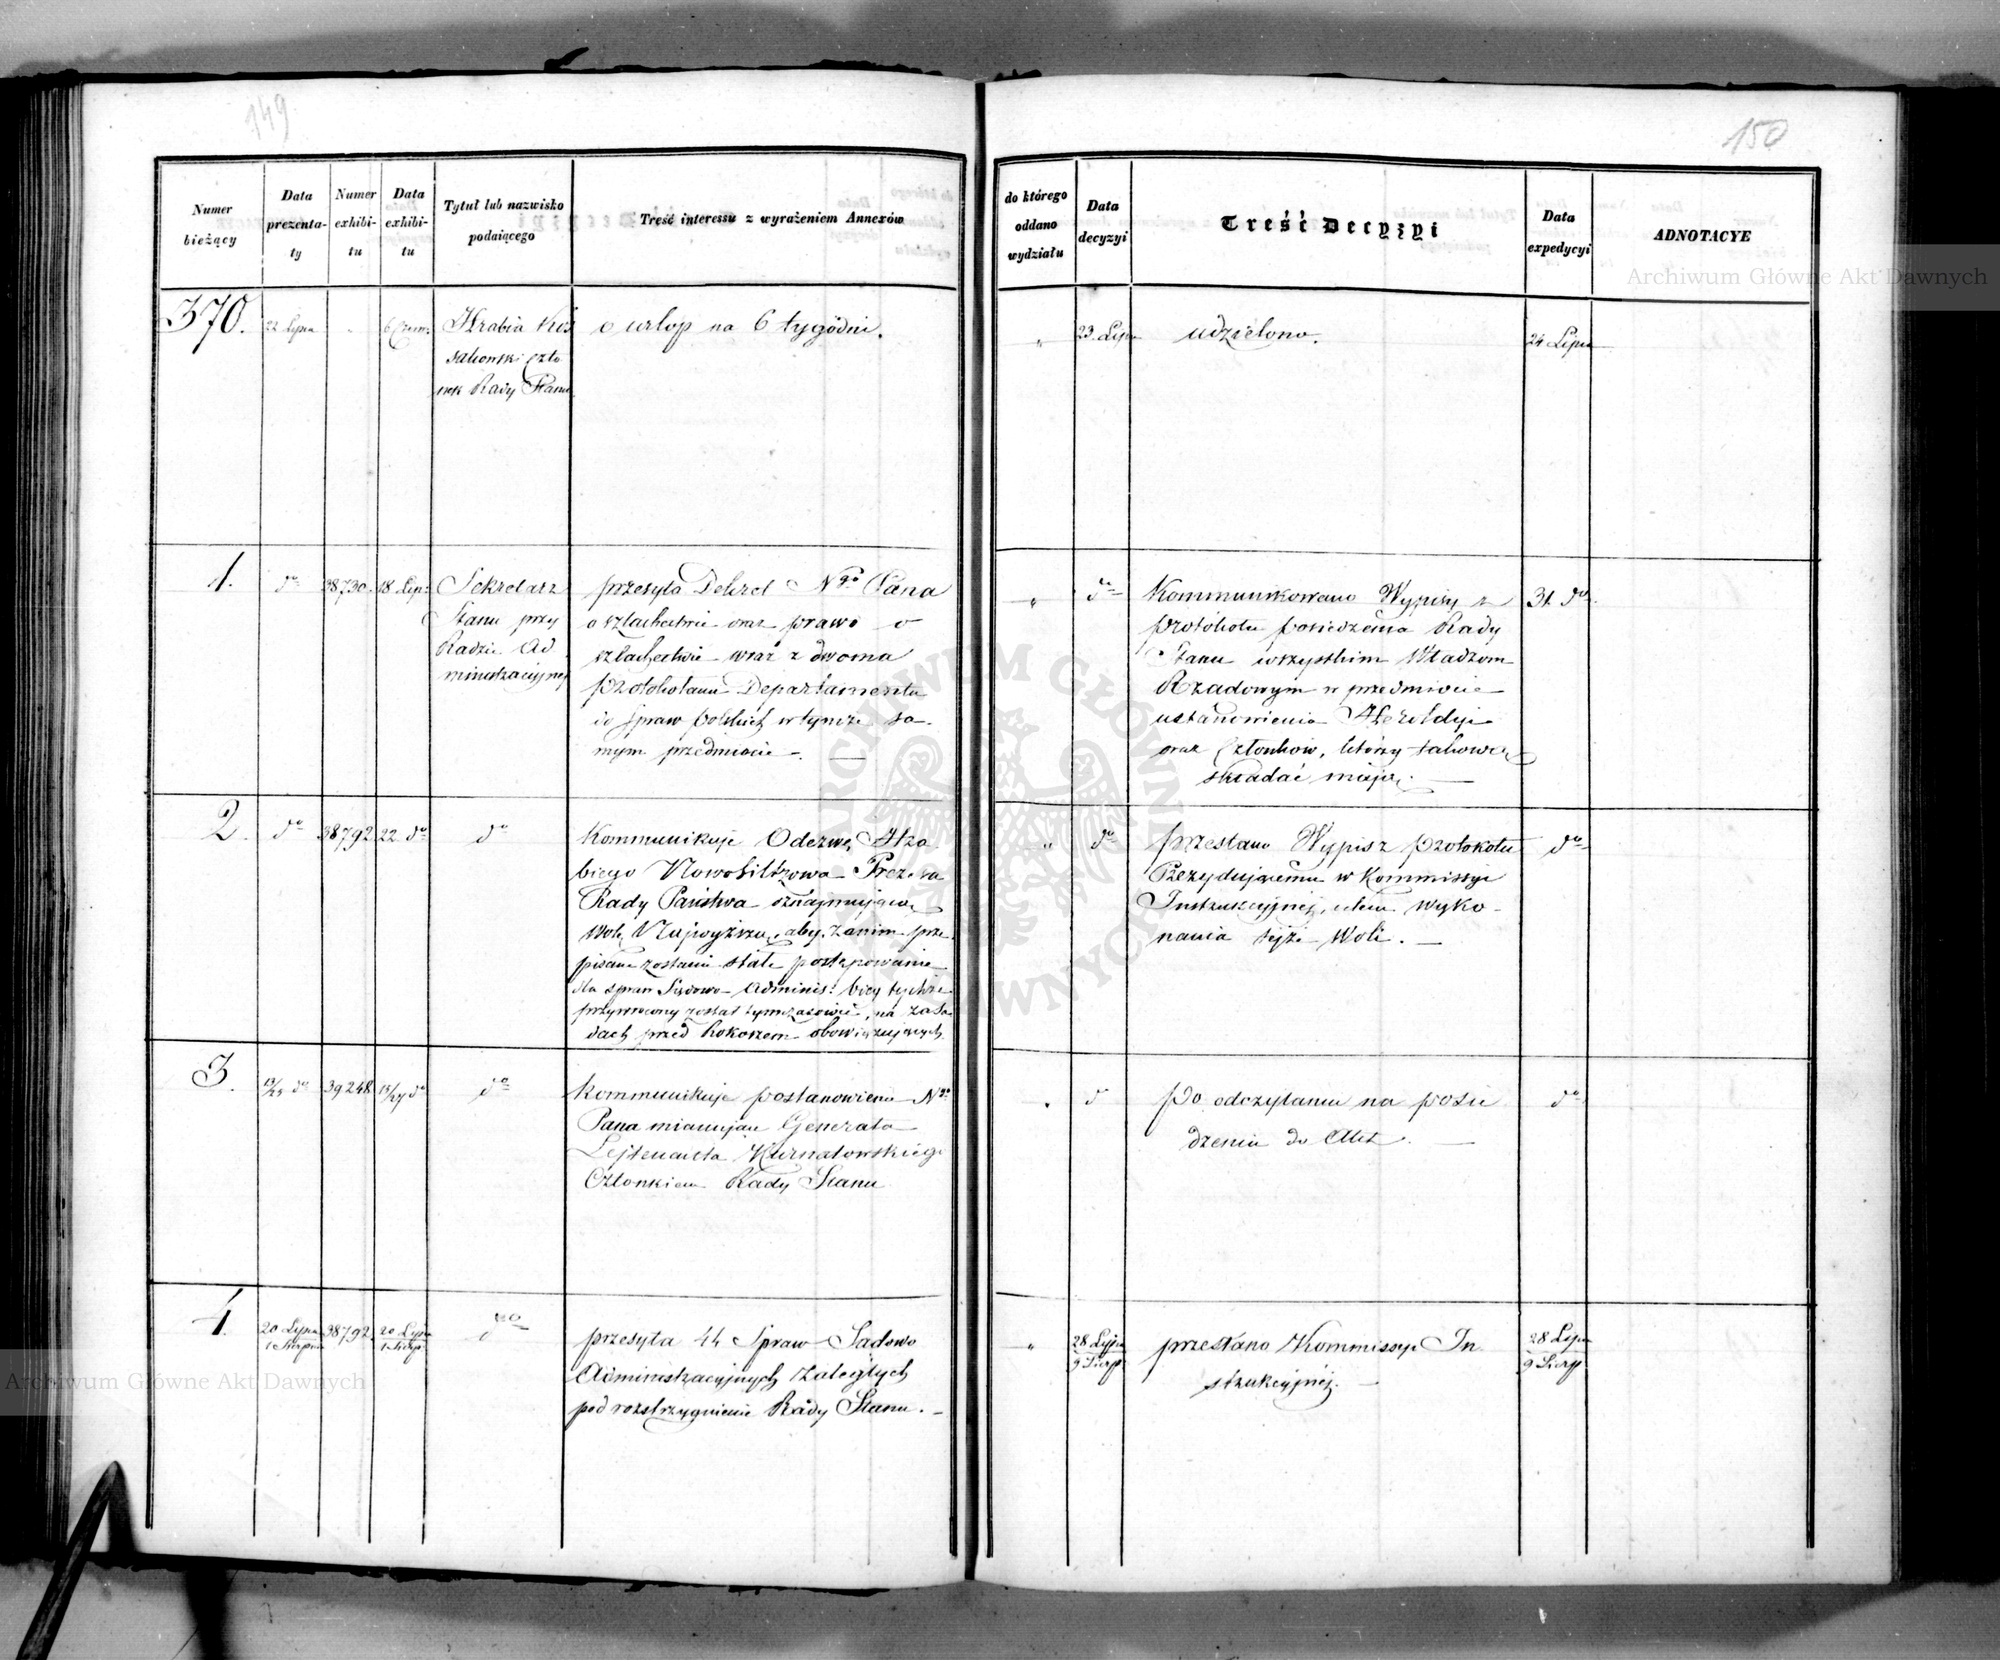 149
Numer
bieżący
Data
prezenta-
ty
Numer
exhibi-
tu
Data
exhibi-
tu
Tytuł lub nazwisko
podaiącego
Treść interessu z wyrażeniem Annexów
370.
22 Lipca
"
6 Czerw:
Hrabia Kos
sakowski Czło
nek Rady Stanu
o urlop na 6 tygodni.
1.
do
38730.
18 Lip:
Sekretarz
Stanu przy
Radzie Ad
ministracyjnej
przesyła Dekret Ngo Pana
o szlachectwie oraz prawo o
szlachectwie wraz z dwoma
protokołami Departamentu
do spraw polskich w tymże sa-
mym przedmiocie.
2.
do
38792
22 do
do
Kommunikuje Odezwę Hra
biego Nowosiltzowa Prezesa
Rady Państwa oznajmującą
wolę Najwyższą, aby zanim prze
pisane zostanie stałe postępowanie
dla spraw Sądowo Adminis: bieg tychże
przywrócony został tymczasowie, na zasa
dach przed Rokoszem obowiązujących
3.
13/25 do
39248
15/27 do
do
Kommunikuje postanowienie Ngo
Pana mianujące Generała
Lejtenanta Kurnatowskiego
Członkiem Rady Stanu
4.
20 Lipca
1 Sierpnia
38792.
20 Lipca
1 Sierp
do
przesyła 44 Spraw Sądowo
Administracyjnych zaległych
pod rozstrzygnienie Rady Stanu. -
150
do którego
oddano
wydziału
Data
decyzyi
Treść Decyzyi
Data
expedycyi
ADNOTACYE
"
23 Lipca
udzielono.
24 Lipca
"
do
Kommunikowano Wypisy z
protokołu posiedzenia Rady
Stanu wszystkim Władzom
Rządowym w przedmiocie
ustanowienia Heroldyi
oraz Członków, którzy takową
składać mają.
31. do
"
do
przesłano Wypis z protokołu
Prezydującemu w Kommissyi
Instrukcyjnej, celem wyko-
nania tejże Woli. -
do
"
d
po odczytaniu na posie
dzeniu do Akt.
do
"
28 Lipca
9 Sierp
przesłano Kommissyi In
strukcyjnéj. -
28 Lipca
9 Sierp
Archiwum Główne Akt Dawnych
Archiwum Główne Akt Dawnych
ARCHIWUM GŁÓWNE AKT DAWNYCH